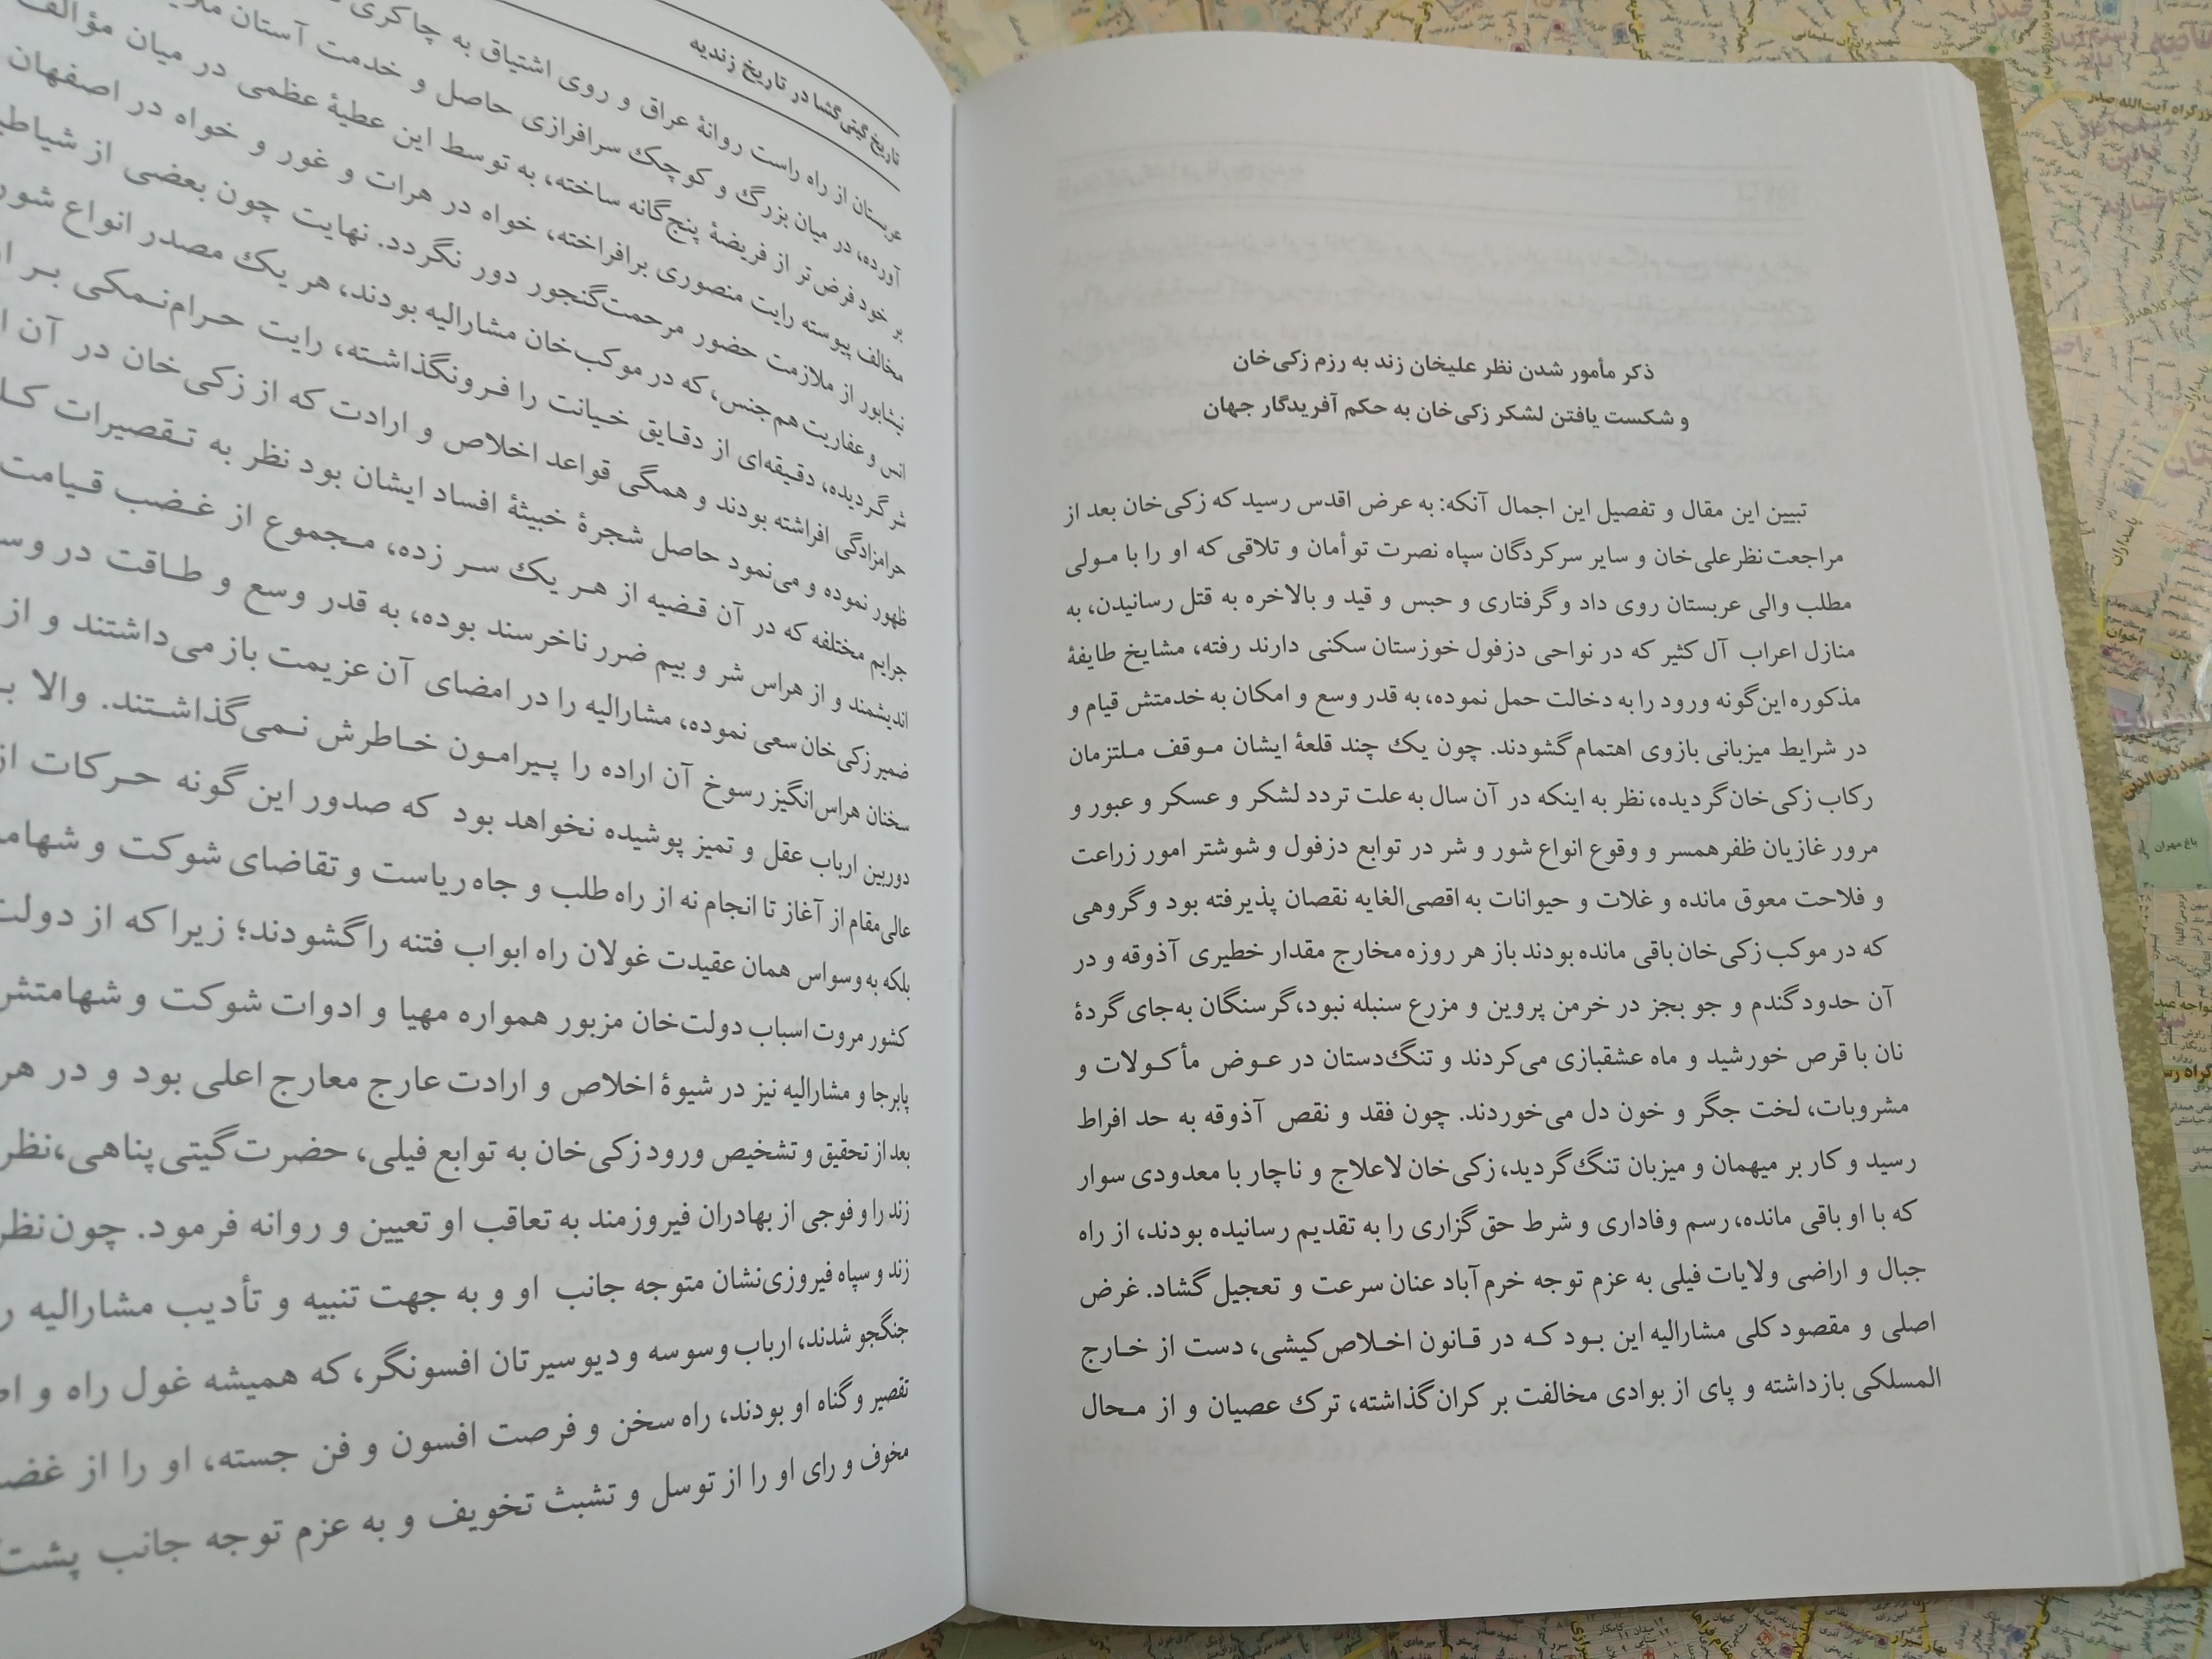 ذکر مأمور شدن نظر علیخان زند به رزم زکی‌خان
و شکست یافتن لشکر زکی‌خان به حکم آفریدگار جهان
تبیین این مقال و تفصیل این اجمال آنکه: به عرض اقدس رسید که زکی‌خان بعد از
مراجعت نظرعلی‌خان و سایر سرکردگان سپاه نصرت توأمان و تلاقی که او را با مولی
مطلب والی عربستان روی داد و گرفتاری و حبس و قید و بالاخره به قتل رسانیدن، به
منازل اعراب آل کثیر که در نواحی دزفول خوزستان سکنی دارند رفته، مشایخ طایفهٔ
مذکوره این‌گونه ورود را به دخالت حمل نموده، به قدر وسع و امکان به خدمتش قیام و
در شرایط میزبانی بازوی اهتمام گشودند. چون یک چند قلعهٔ ایشان موقف ملتزمان
رکاب زکی‌خان گردیده، نظر به اینکه در آن سال به علت تردد لشکر و عسکر و عبور و
مرور غازیان ظفرهمسر و وقوع انواع شور و شر در توابع دزفول و شوشتر امور زراعت
و فلاحت معوق مانده و غلات و حیوانات به اقصی‌الغایه نقصان پذیرفته بود و گروهی
که در موکب زکی‌خان باقی مانده بودند باز هر روزه مخارج مقدار خطیری آذوقه و در
آن حدود گندم و جو بجز در خرمن پروین و مزرع سنبله نبود، گرسنگان به‌جای گردهٔ
نان با قرص خورشید و ماه عشقبازی می‌کردند و تنگ‌دستان در عوض مأکولات و
مشروبات، لخت جگر و خون دل می‌خوردند. چون فقد و نقص آذوقه به حد افراط
رسید و کار بر میهمان و میزبان تنگ گردید، زکی‌خان لاعلاج و ناچار با معدودی سوار
که با او باقی مانده، رسم وفاداری و شرط حق‌گزاری را به تقدیم رسانیده بودند، از راه
جبال و اراضی ولایات فیلی به عزم توجه خرم‌آباد عنان سرعت و تعجیل گشاد. غرض
اصلی و مقصود کلی مشارالیه این بود که در قانون اخلاص‌کیشی، دست از خارج
المسلکی بازداشته و پای از بوادی مخالفت بر کران گذاشته، ترک عصیان و از محال
تاریخ گیتی‌گشا در تاریخ زندیه
عربستان از راه راست روانهٔ عراق و روی اشتیاق به چاکری
آورده، در میان بزرگ و کوچک سرافرازی حاصل و خدمت آستان
بر خود فرض‌تر از فریضهٔ پنج‌گانه ساخته، به توسط این عطیهٔ عظمی در میان مؤالف
مخالف پیوسته رایت منصوری برافراخته، خواه در هرات و غور و خواه در اصفهان
نیشابور از ملازمت حضور مرحمت‌گنجور دور نگردد. نهایت چون بعضی از
انس و عفاریت هم‌جنس، که در موکب‌خان مشارالیه بودند، هر یک مصدر انواع شور
شر گردیده، دقیقه‌ای از دقایق خیانت را فرونگذاشته، رایت حرام‌نمکی بر
حرامزادگی افراشته بودند و همگی قواعد اخلاص و ارادت که از زکی‌خان در آن
ظهور نموده و می‌نمود حاصل شجرهٔ خبیثهٔ افساد ایشان بود نظر به تقصیرات
جرایم مختلفه که در آن قضیه از هر یک سر زده، مجموع از غضب قیامت
اندیشمند و از هراس شر و بیم ضرر ناخرسند بوده، به قدر وسع و طاقت در
ضمیر زکی‌خان سعی نموده، مشارالیه را در امضای آن عزیمت باز می‌داشتند و از
سخنان هراس‌انگیز رسوخ آن اراده را پیرامون خاطرش نمی‌گذاشتند. والا
دوربین ارباب عقل و تمیز پوشیده نخواهد بود که صدور این گونه حرکات از
عالی‌مقام از آغاز تا انجام نه از راه طلب و جاه ریاست و تقاضای شوکت و
بلکه به وسواس همان عقیدت غولان راه ابواب فتنه را گشودند؛ زیرا که از دولت
کشور مروت اسباب دولت‌خان مزبور همواره مهیا و ادوات شوکت و شهامتش
پابرجا و مشارالیه نیز در شیوهٔ اخلاص و ارادت عارج معارج اعلی بود و در هر
بعد از تحقیق و تشخیص ورود زکی‌خان به توابع فیلی، حضرت گیتی‌پناهی، نظر
زند را و فوجی از بهادران فیروزمند به تعاقب او تعیین و روانه فرمود. چون نظر
زند و سپاه فیروزی‌نشان متوجه جانب او و به جهت تنبیه و تأدیب مشارالیه
جنگجو شدند، ارباب وسوسه و دیوسیرتان افسونگر، که همیشه غول راه و
تقصیر و گناه او بودند، راه سخن و فرصت افسون و فن جسته، او را از
مخوف و رای او را از توسل و تشبث تخویف و به عزم توجه جانب پشت